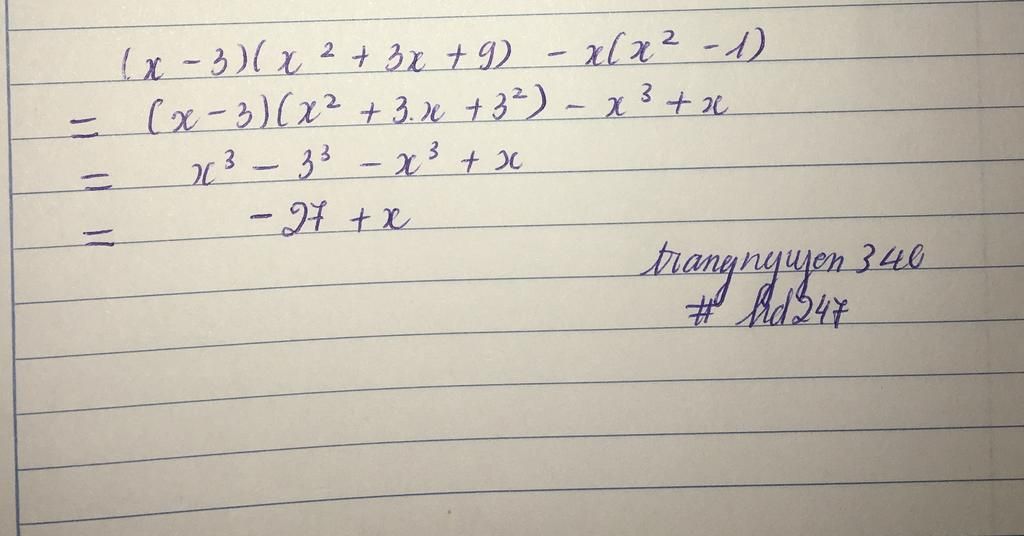 (x - 3)(x² + 3x + 9) - x(x² - 1)
= (x - 3)(x² + 3.x + 3²) - x³ + x
= x³ - 3³ - x³ + x
= - 27 + x
trangnguyen 346
# hd247